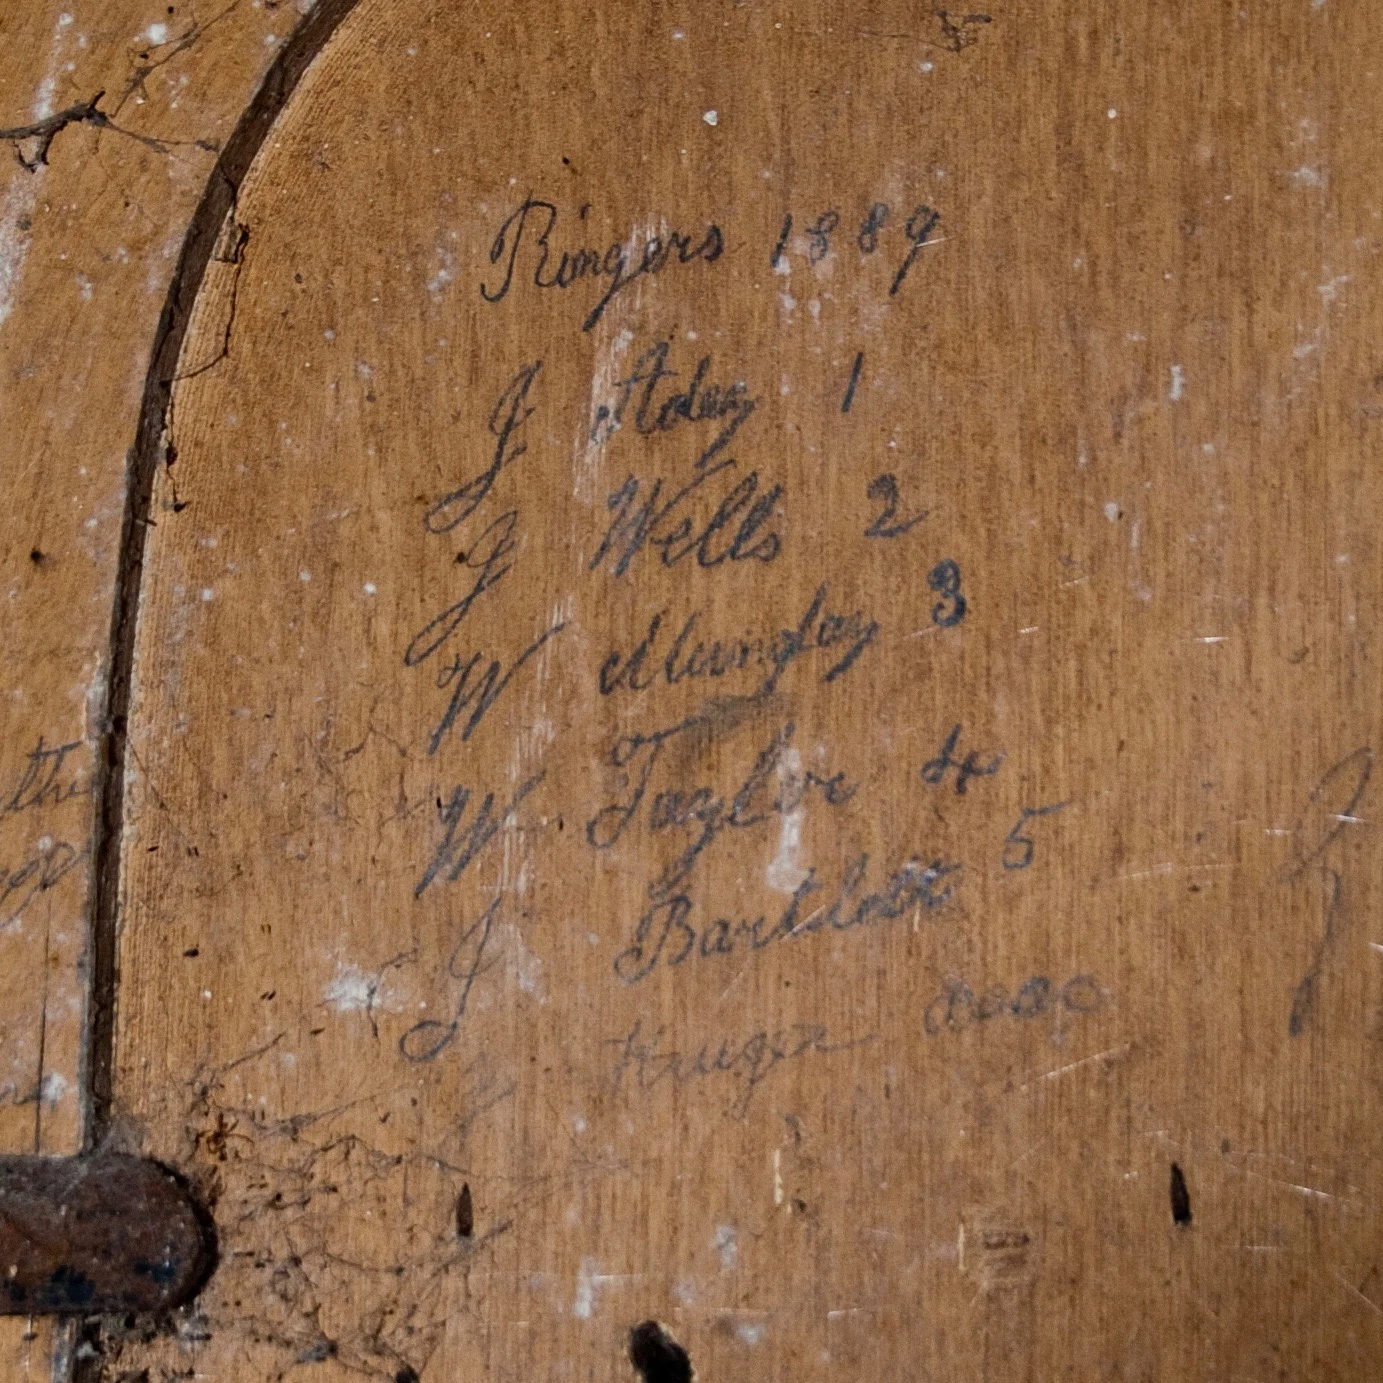 Ringers 1889
J Adey 1
J Wells 2
W Munday 3
W Taylor 4
J Bartlett 5
Kruger
the